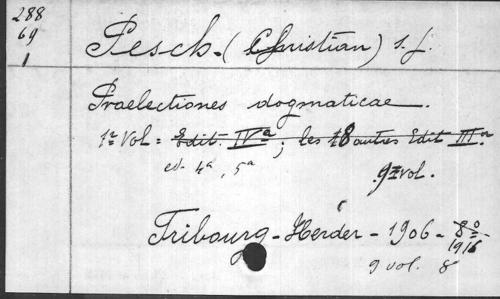 288
69
1
Pesch. (Christian) s. j.
Praelectiones dogmaticae.
1r Vol = Edit. IVa ; les 8 autres Edit IIIa
ed. 4a, 5a
9 vol.
Fribourg - Herder - 1906 - 8o
1916
9 vol. 8